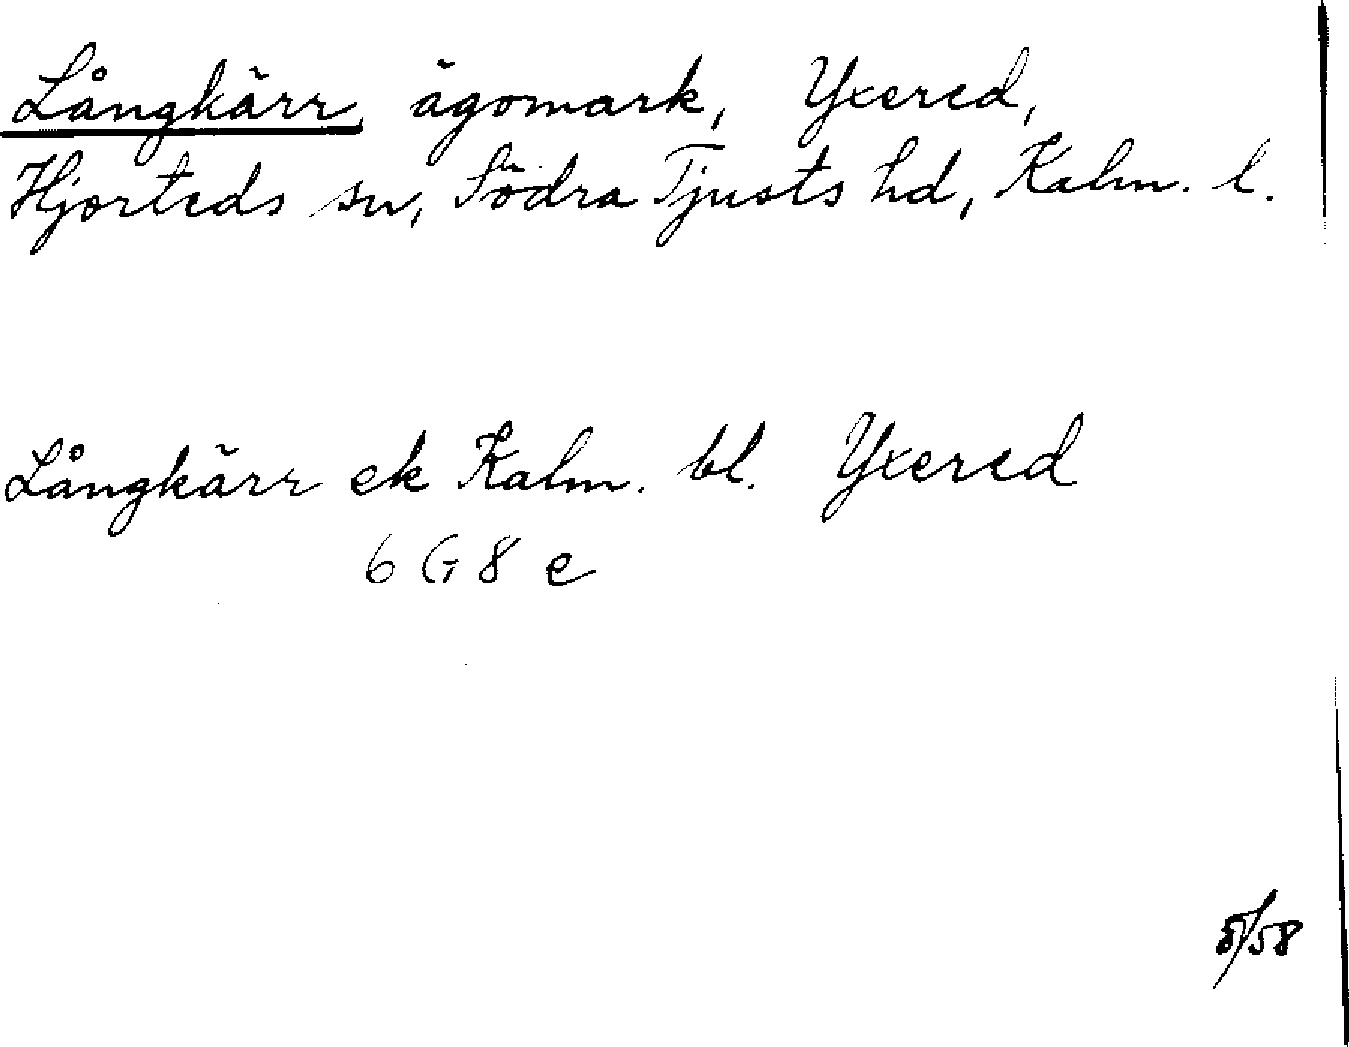 Långkärr, ägomark, Yxered,
Hjorteds sn, Södra Tjusts hd, Kalm. l.
Långkärr ek Kalm. bl. Yxered
6 G 8 e
5/58